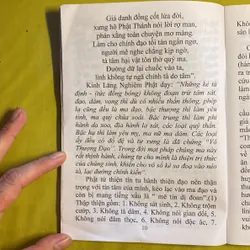 Giả danh đồng cốt lừa đời,
xưng hô Phật Thánh nói lời ry man,
phán xằng toán chuyện mơ màng.
Làm cho chính đạo tối tàn ngăn nge,
người mê nghe chẳng kịp ngờ,
tà tâm hại vật tôn thờ quỷ ma.
Đường dữ lại chuốc vào ta,
linh không tự ngã chính tà do tâm".
Kinh Lăng Nghiêm Phật dạy: "Những kẻ tà
định - (tức đồng bóng) không đoạn trừ tâm sát,
đạo, dâm, vọng thì dù có nhiều thần thông, phép
lạ cũng đều là ma đạo, bậc thượng thì làm phi
tinh, ma quỷ chúa soái. Bậc trung thì làm phi
hành dạ xoa, địa hành la sát, các loại quỷ thần.
Bậc hạ thì làm yêu my, ma nữ mà các đám ấy
cũng có rất nhiều đồ đệ và tự xưng là đã chứng "Vô
Thượng Đạo". Trong đời mạt pháp chúng ma này
rất thịnh hành, chúng tự cho mình là thiện tri thức
của chúng sinh, khiến cho vô số kẻ sa đoạ vào nhà
ma, lạc đường chính kiến".
Phật tử thiện tín tu hành thiện đạo nên thận
trọng với tín tâm của mình, kẻo lạc vào ma đạo và
còn bị mang tiếng xấu là " mê tín dị đoan" (1)
Thập thiện gồm: 1. Không sát sinh, 2. Không trộm
cướp, 3. Không tà dâm, 4. Không nói gian dối, 5.
Không nói đâm thọc, 6. Không nói độc ác, 7.
10